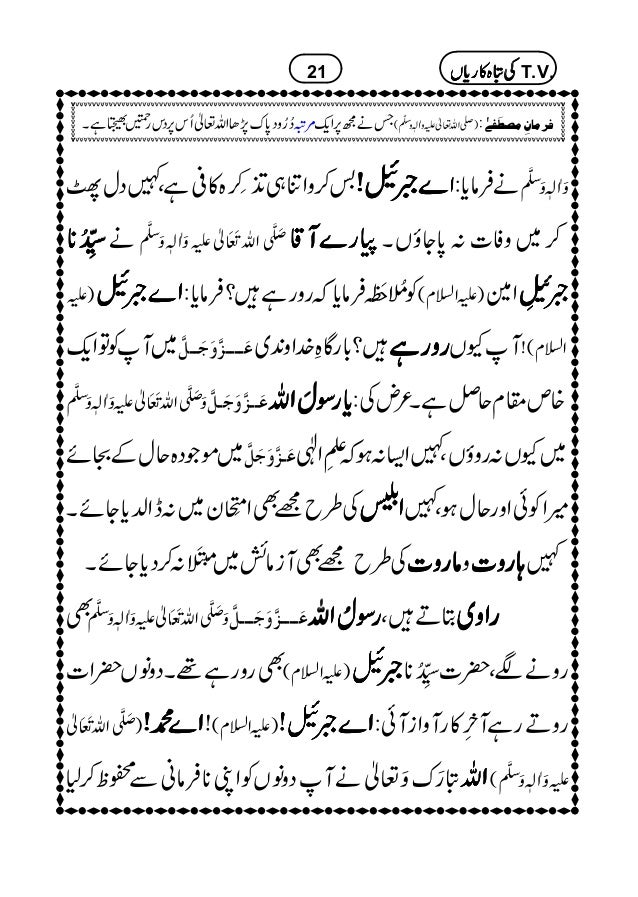 T.V. کی تباہ کاریاں
21
فرمانِ مصطَفٰے : (صلی اللہ تعالیٰ علیہ واٰلہ وسلّم) جس نے مجھ پر ایک مرتبہ دُرُود پاک پڑھا اللہ تعالیٰ اُس پر دس رحمتیں بھیجتا ہے۔
وَاٰلہٖ وَسلَّم نے فرمایا: اے جبرئیل! بس کرو اتنا ہی تذکِرہ کافی ہے، کہیں دل پھٹ
کر میں وفات نہ پا جاؤں۔ پیارے آقا صَلَّی اللہ تَعَالیٰ علیہ وَاٰلہٖ وَسلَّم نے سیِّدُنا
جبرئیلِ امین (علیہ السلام) کو مُلاحَظہ فرمایا کہ رو رہے ہیں؟ فرمایا: اے جبرئیل (علیہ
السلام)! آپ کیوں رو رہے ہیں؟ بارگاہِ خداوندی عَـزَّوَجَـلَّ میں آپ کو تو ایک
خاص مقام حاصل ہے۔ عرض کی: یارسولَ اللہ عَـزَّوَجَـلَّ وَصَلَّی اللہ تَعَالیٰ علیہ وَاٰلہٖ وَسلَّم
میں کیوں نہ روؤں، کہیں ایسا نہ ہو کہ علمِ الٰہی عَـزَّوَجَلَّ میں موجودہ حال کے بجائے
میرا کوئی اور حال ہو، کہیں ابلیس کی طرح مجھے بھی امتحان میں نہ ڈالدیا جائے۔
کہیں ہاروت و ماروت کی طرح مجھے بھی آزمائش میں مبتَلا نہ کر دیا جائے۔
راوی بتاتے ہیں، رسولُ اللہ عَـزَّوَجَـلَّ وَصَلَّی اللہ تَعَالیٰ علیہ وَاٰلہٖ وَسلَّم بھی
رونے لگے، حضرت سیِّدُنا جبرئیل (علیہ السلام) بھی رو رہے تھے۔ دونوں حضرات
روتے رہے آخِرِ کار آواز آئی: اے جبرئیل! (علیہ السلام)! اے محمد! (صَلَّی اللہ تَعَالیٰ
علیہ وَاٰلہٖ وَسلَّم) اللہ تبارَک وَ تعالیٰ نے آپ دونوں کو اپنی نافرمانی سے محفوظ کر لیا